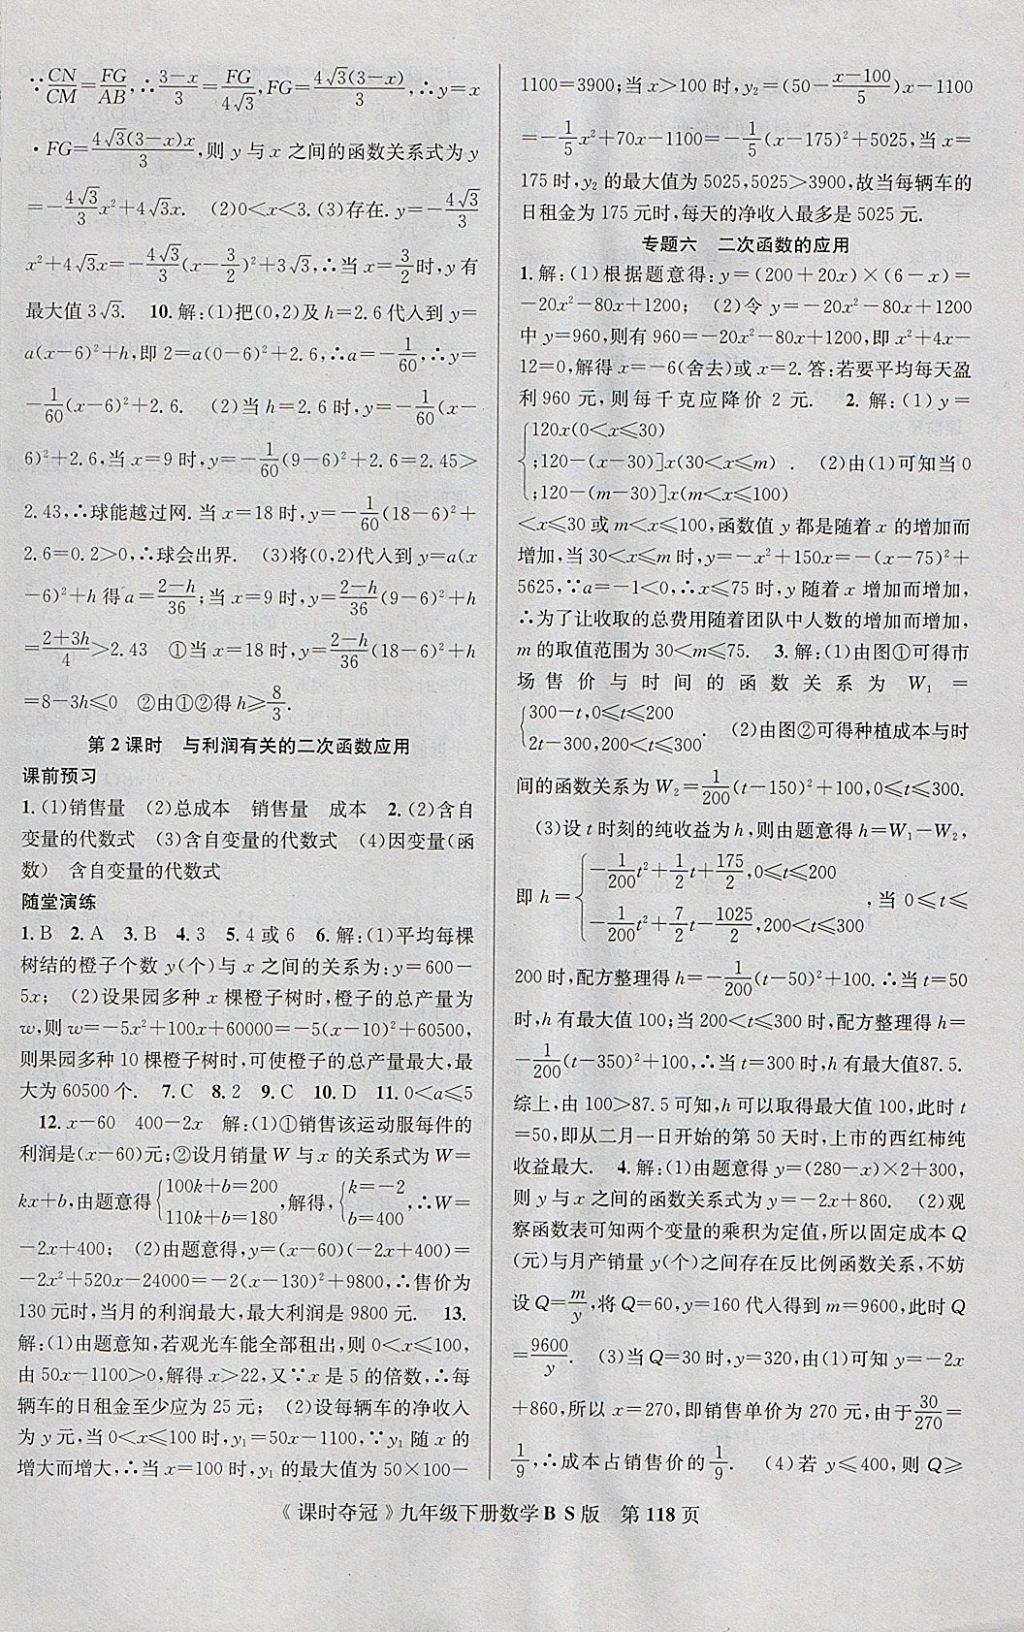 ∵CN/CM=FG/AB,∴(3−x)/3=FG/(4√3),FG=4√3(3−x)/3,∴y=x
·FG=4√3(3−x)x/3,则 y 与 x 之间的函数关系式为 y
=−(4√3/3)x²+4√3x. (2)0<x<3.(3)存在.y=−4√3/3
x²+4√3x=−(4√3/3)(x−3/2)²+3√3,∴当 x=3/2时,y 有
最大值 3√3. 10.解:(1)把(0,2)及 h=2.6代入到 y=
a(x−6)²+h,即 2=a(0−6)²+2.6,∴a=−1/60,∴y=
−1/60(x−6)²+2.6. (2)当 h=2.6 时,y=−1/60(x−
6)²+2.6,当 x=9 时,y=−1/60(9−6)²+2.6=2.45>
2.43,∴球能越过网.当 x=18 时,y=−1/60(18−6)²+
2.6=0.2>0,∴球会出界. (3)将(0,2)代入到 y=a(x
−6)²+h 得 a=(2−h)/36;当 x=9 时,y=(2−h)/36(9−6)²+h
=(2+3h)/4>2.43 ①当 x=18 时,y=(2−h)/36(18−6)²+h
=8−3h≤0 ②由①②得 h≥8/3.
第 2 课时 与利润有关的二次函数应用
课前预习
1.(1)销售量 (2)总成本 销售量 成本 2.(2)含自
变量的代数式 (3)含自变量的代数式 (4)因变量(函
数) 含自变量的代数式
随堂演练
1.B 2.A 3.B 4.3 5.4 或 6 6.解:(1)平均每棵
树结的橙子个数 y(个)与 x 之间的关系为:y=600−
5x; (2)设果园多种 x 棵橙子树时,橙子的总产量为
w,则 w=−5x²+100x+60000=−5(x−10)²+60500,
则果园多种 10 棵橙子树时,可使橙子的总产量最大,最
大为 60500 个. 7.C 8.2 9.C 10.D 11.0<a≤5
12.x−60 400−2x 解:(1)①销售该运动服每件的
利润是(x−60)元;②设月销量 W 与 x 的关系式为 W=
kx+b,由题意得{100k+b=200 110k+b=180,解得,{k=−2 b=400,∴W=
−2x+400; (2)由题意得,y=(x−60)(−2x+400)=
−2x²+520x−24000=−2(x−130)²+9800,∴售价为
130 元时,当月的利润最大,最大利润是 9800 元. 13.
解:(1)由题意知,若观光车能全部租出,则 0<x≤100,
由 50x−1100>0,解得 x>22,又∵x 是 5 的倍数,∴每
辆车的日租金至少应为 25 元; (2)设每辆车的净收入
为 y 元,当 0<x≤100 时,y₁=50x−1100,∵y₁ 随 x 的
增大而增大,∴当 x=100 时,y₁ 的最大值为 50×100−
1100=3900;当 x>100 时,y₂=(50−(x−100)/5)x−1100
=−1/5x²+70x−1100=−1/5(x−175)²+5025,当 x=
175 时,y₂ 的最大值为 5025,5025>3900,故当每辆车的
日租金为 175 元时,每天的净收入最多是 5025 元.
专题六 二次函数的应用
1.解:(1)根据题意得:y=(200+20x)×(6−x)=
−20x²−80x+1200; (2)令 y=−20x²−80x+1200
中 y=960,则有 960=−20x²−80x+1200,即 x²+4x−
12=0,解得 x=−6(舍去)或 x=2.答:若要平均每天盈
利 960 元,则每千克应降价 2 元. 2.解:(1)y=
{120x(0<x≤30)
;120−(x−30)]x(30<x≤m) . (2)由(1)可知当 0
;120−(m−30)]x(m<x≤100)
<x≤30 或 m<x≤100,函数值 y 都是随着 x 的增加而
增加,当 30<x≤m 时,y=−x²+150x=−(x−75)²+
5625,∵a=−1<0,∴x≤75 时,y 随着 x 增加而增加,
∴为了让收取的总费用随着团队中人数的增加而增加,
m 的取值范围为 30<m≤75. 3.解:(1)由图①可得市
场售价与时间的函数关系为 W₁=
{300−t,0≤t≤200 2t−300,200<t≤300. (2)由图②可得种植成本与时
间的函数关系为 W₂=1/200(t−150)²+100,0≤t≤300.
(3)设 t 时刻的纯收益为 h,则由题意得 h=W₁−W₂,
即 h={−1/200t²+1/2t+175/2,0≤t≤200 −1/200t²+7/2t−1025/2,200<t≤300,当 0≤t≤
200 时,配方整理得 h=−1/200(t−50)²+100.∴当 t=50
时,h 有最大值 100;当 200<t≤300 时,配方整理得 h=
−1/200(t−350)²+100,∴当 t=300 时,h 有最大值87.5.
综上,由 100>87.5 可知,h 可以取得最大值 100,此时 t
=50,即从二月一日开始的第 50 天时,上市的西红柿纯
收益最大. 4.解:(1)由题意得 y=(280−x)×2+300,
则 y 与 x 之间的函数关系式为 y=−2x+860. (2)观
察函数表可知两个变量的乘积为定值,所以固定成本 Q
(元)与月产销量 y(个)之间存在反比例函数关系,不妨
设 Q=m/y,将 Q=60,y=160 代入得到 m=9600,此时 Q
=9600/y. (3)当 Q=30 时,y=320,由(1)可知 y=−2x
+860,所以 x=270,即销售单价为 270 元,由于30/270=
1/9,∴成本占销售价的1/9. (4)若 y≤400,则 Q≥
《课时夺冠》九年级下册数学 B S 版 第 118 页